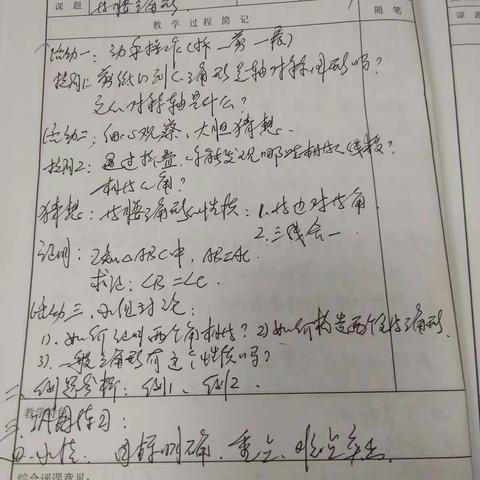 课题 等腰三角形
教学过程简记 随笔
课题
活动一:动手操作(折一剪一展)
提问1:剪纸得到的三角形是轴对称图形吗?
它的对称轴是什么?
活动二:细心观察,大胆猜想.
提问2:通过折叠,你能发现哪些相等的线段?
相等的角?
猜想:等腰三角形的性质:1.等边对等角
2.三线合一
证明:已知△ABC中,AB=AC.
求证:∠B=∠C.
活动三、小组讨论:
1).如何证明两个角相等?2)如何构造两个全等三角形.
3).一般三角形有这个性质吗?
二 例题分析:例1、例2.
教学
三 巩固练习:
四.小结:目标明确.重点、难点突出.
综合评课意见: